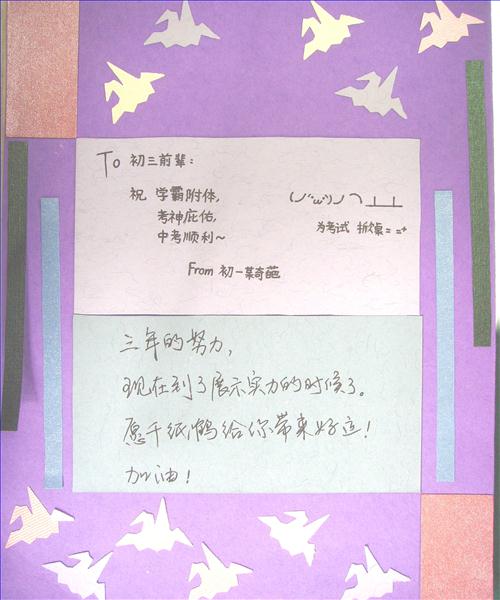 To 初三前辈:
祝 学霸附体,
考神庇佑,
中考顺利~
(╯'ω')╯⌒┴┴
为考试 折桌= =+
From 初一某奇葩
三年的努力,
现在到了展示实力的时候了。
愿千纸鹤给你带来好运!
加油!